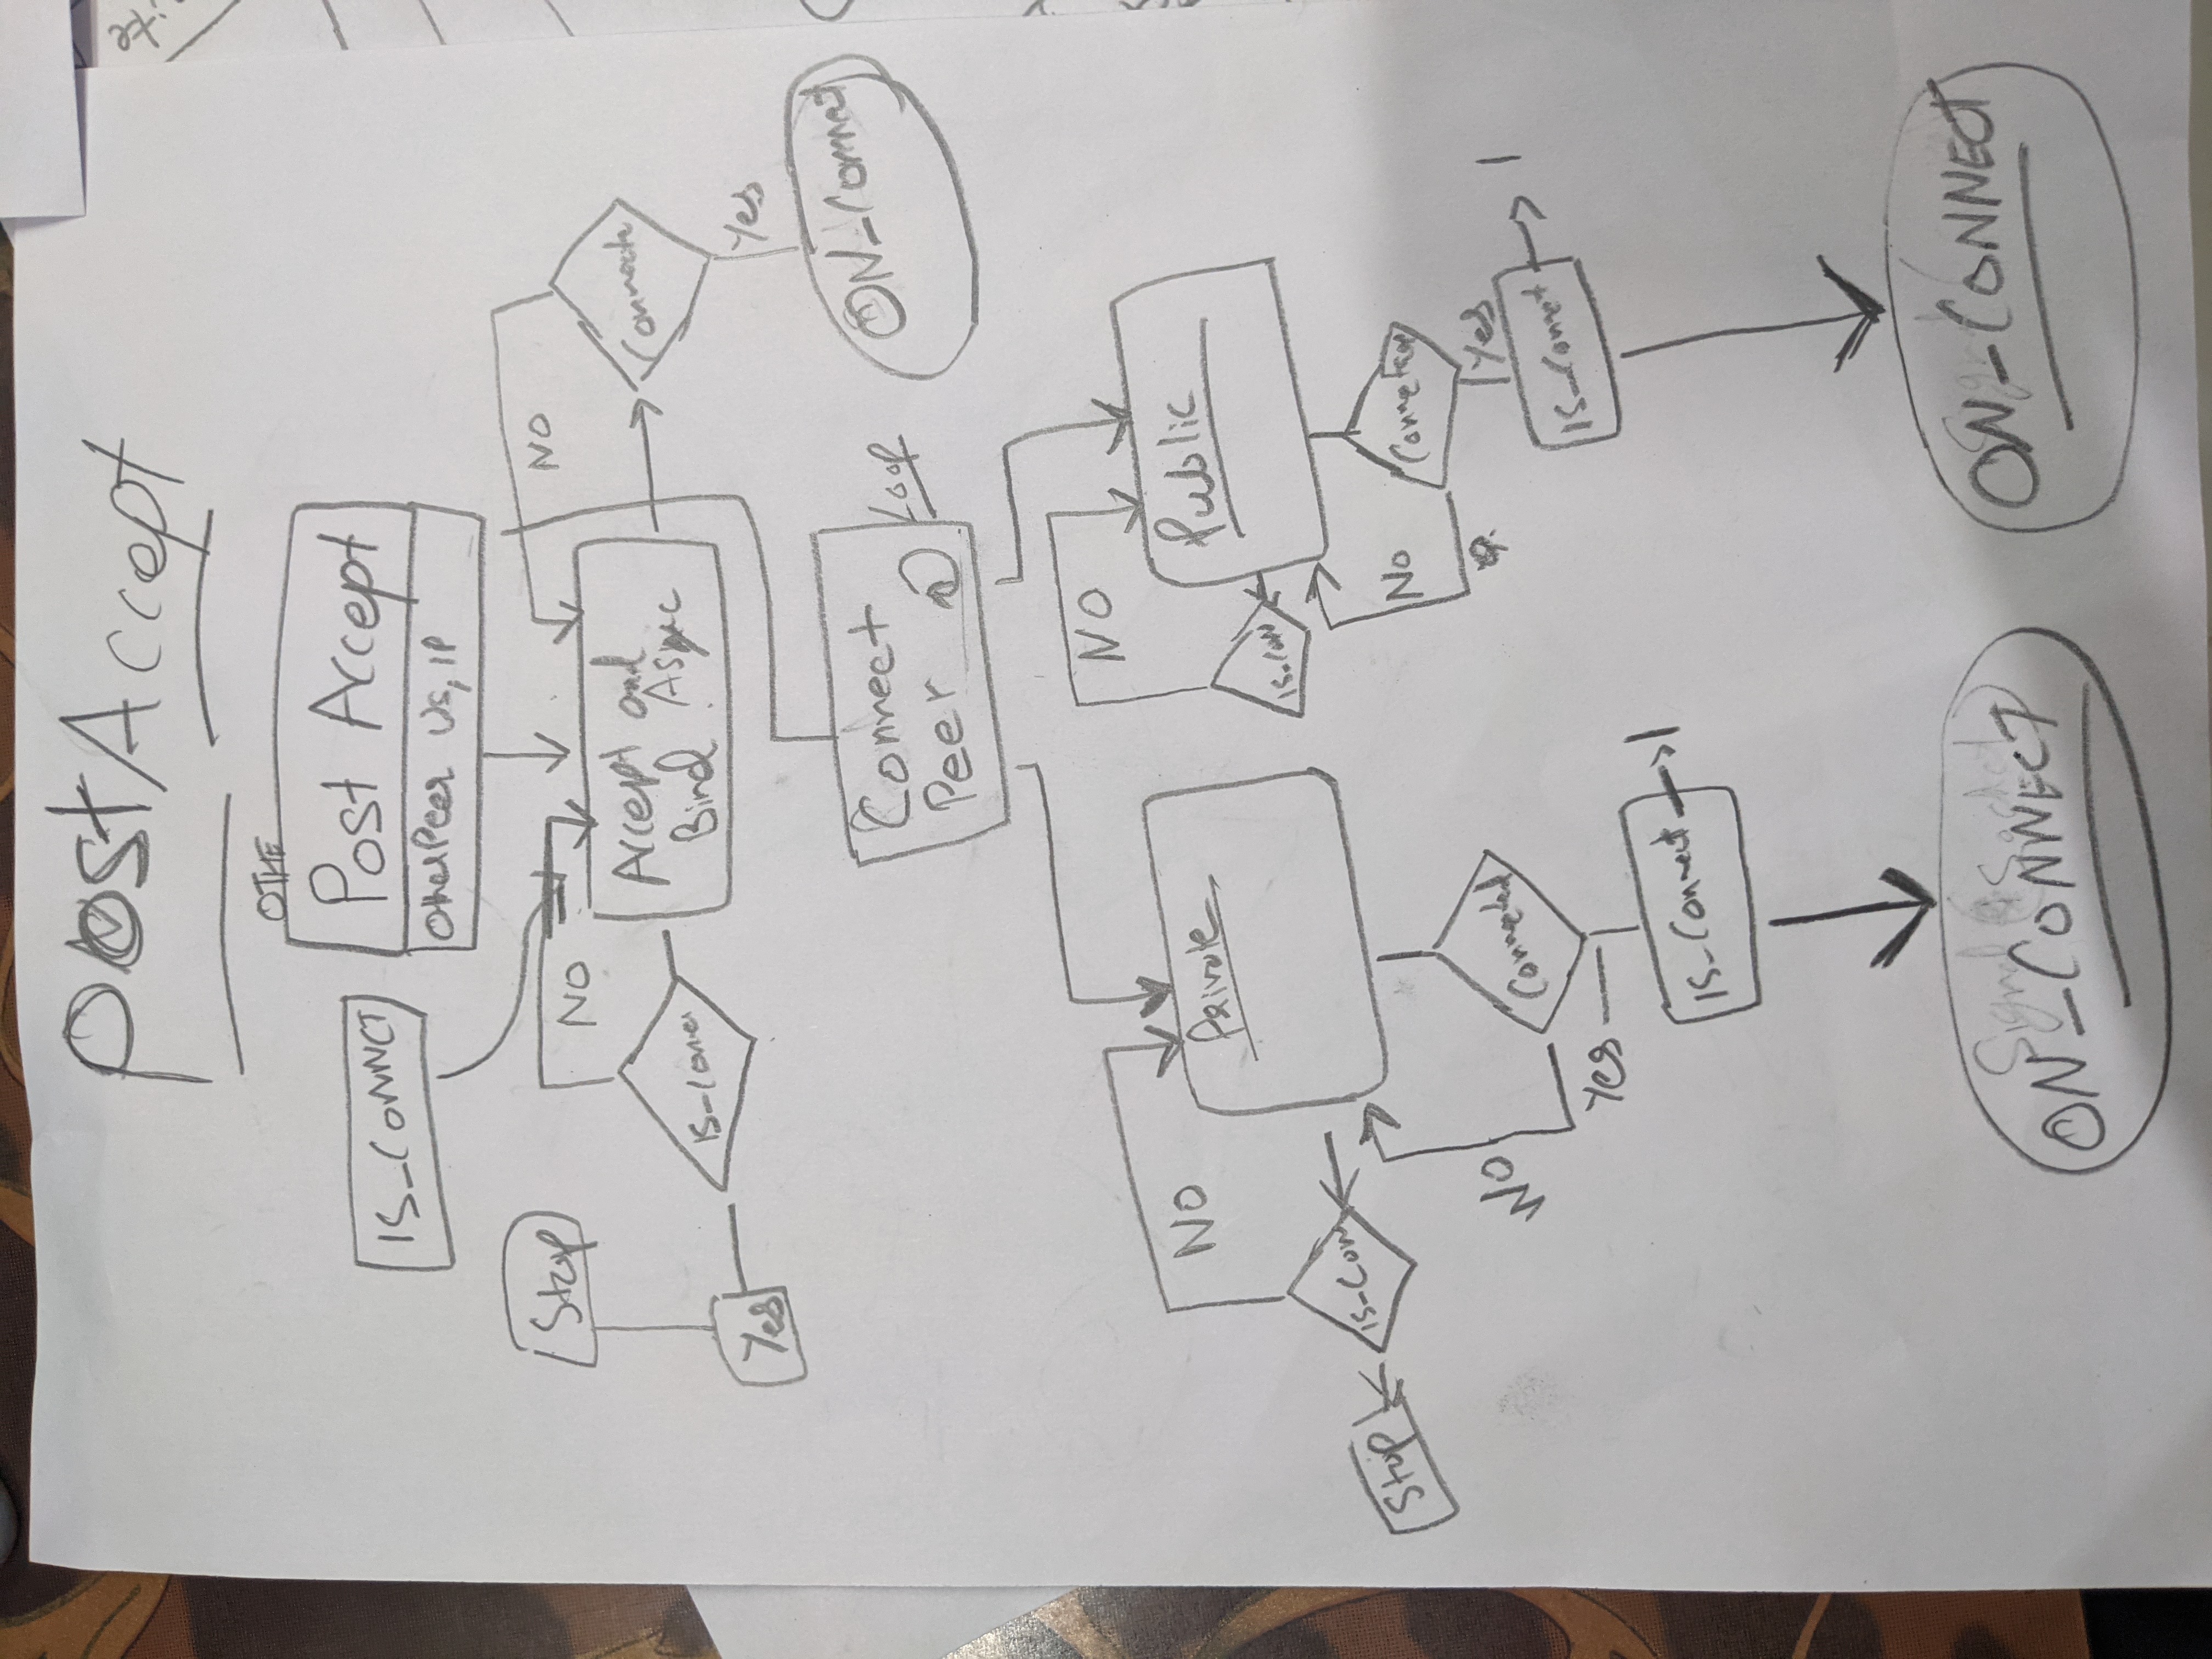 Post Accept
OTHE
Post Accept
OtherPeer Us, IP
IS_CONNCT
Stop
NO
NO
Accept and
Bind Async
IS_Connec
Connecte
Yes
Yes
ON_Connect
Connect
Peer
Loop
NO
NO
Private
Public
IS_CON
IS_Conn
Stop
No
NO
Connected
Yes
Yes
IS_Connect
1
IS_Connect
1
Signal Socket
ON_CONNECT
ON_CONNECT